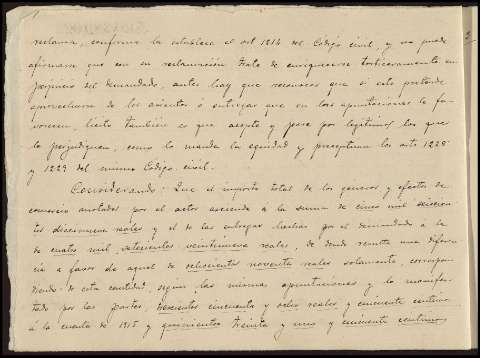 reclama, conforme lo establece el art 1214 del Código civil, y no puede
afirmarse que con su reclamación trate de enriquecerse torticeramente en
perjuicio del demandado, antes hay que reconocer que si este pretende
aprovecharse de los asientos ó entregas que en las apuntaciones le fa-
vorecen, lícito también es que acepte y pase por legítimos los que
le perjudiquen, como lo manda la equidad y preceptúan los arts 1228
y 1229 del mismo Código civil.
Considerando: Que el importe total de los generos y efectos de
comercio anotados por el actor asciende á la suma de cinco mil seiscien
tos diecinueve reales y el de las entregas hechas por el demandado a la
de cuatro mil setecientos veintinueve reales, de donde resulta una diferen
cia á favor de aquel de ochocientos noventa reales solamente, correspon
diendo de esta cantidad, segun las mismas apuntaciones y lo manifes-
tado por las partes, trescientos cincuenta y ocho reales y cincuenta centimos
á la cuenta de 1915 y quinientos treinta y uno y cincuenta centimos